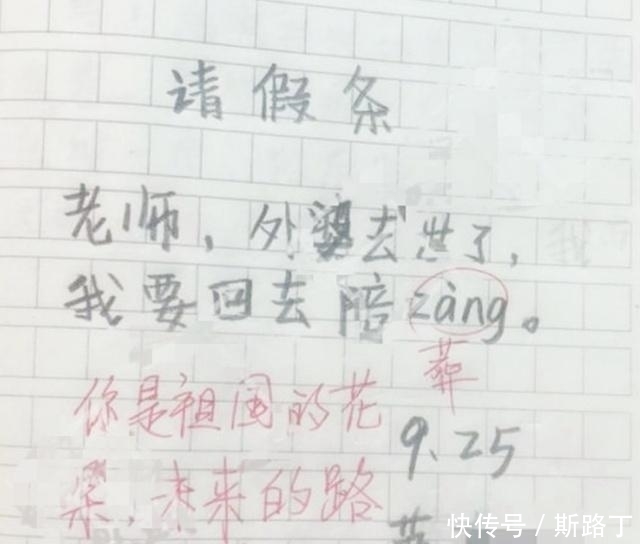 请假条
老师，外婆去世了，
我要回去陪zàng。
葬
你是祖国的花
9.25
朵，未来的路
快传号/斯路丁